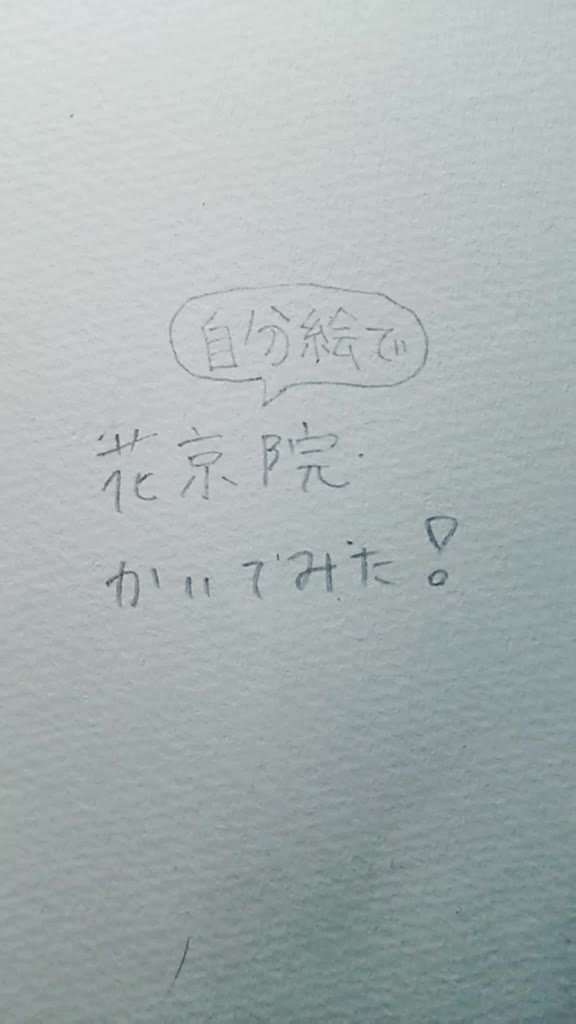 自分絵で
花京院
かいてみた!